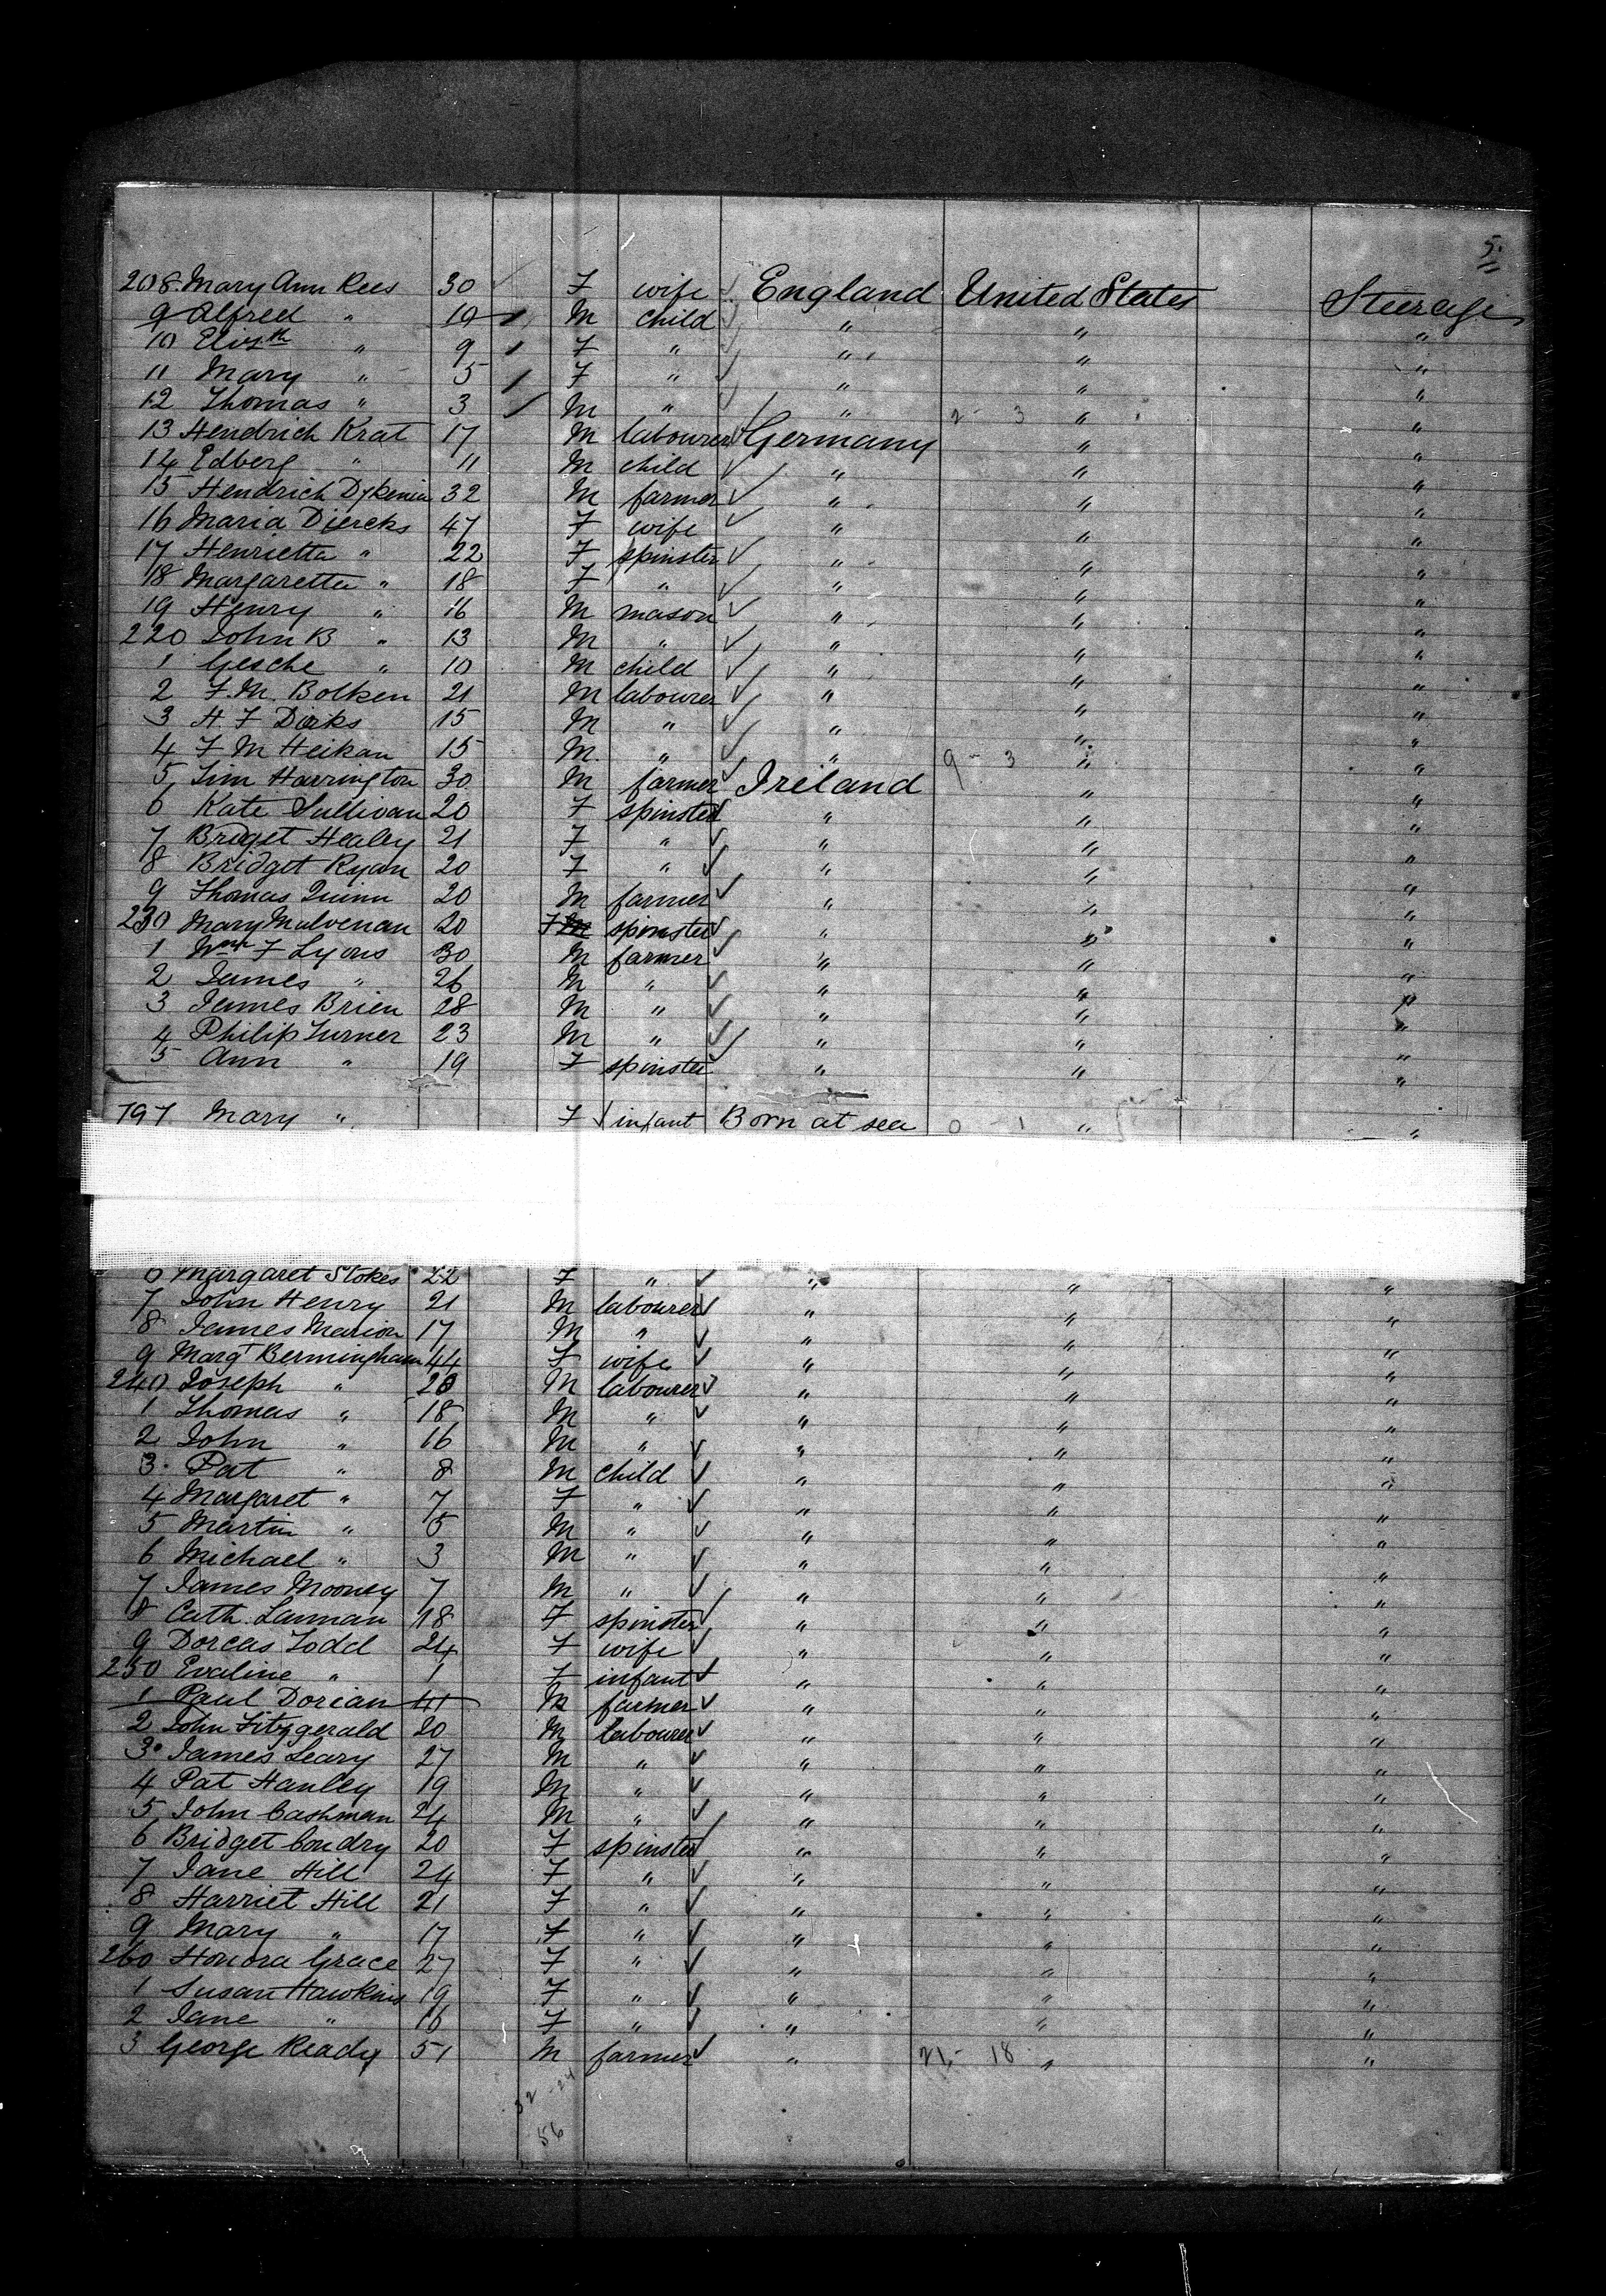 5.
208 Mary Ann Rees 30 F wife England United States Steerage
9 Alfred " 10 M child " " "
10 Elizth " 9 F " " " "
11 Mary " 5 F " " " "
12 Thomas " 3 M " " 2 - 3 " "
13 Hendrich Krat 17 M labourer Germany " "
14 Edberg " 11 M child " " "
15 Hendrich 32 M farmer " " "
16 Maria Diercks 47 F wife " " "
17 Henrietta " 22 F spinster " " "
18 Margaretta " 18 F " " " "
19 Henry " 16 M mason " " "
220 John B " 13 M " " " "
1 Gesche " 10 M child " " "
2 F. M. Bolken 21 M labourer " " "
3 H F Dirks 15 M " " " "
4 F M Heikan 15 M. " " 9 - 3 " "
5 Tim Harrington 30 M farmer Ireland " "
6 Kate Sullivan 20 F spinster " " "
7 Bridget Healey 21 F " " " "
8 Bridget Ryan 20 F " " " "
9 Thomas Quinn 20 M farmer " " "
230 Mary Mulvenan 20 F M spinster " " "
1 Wm F Lyons 30 M farmer " " "
2 James " 26 M " " " "
3 James Brien 28 M " " " "
4 Philip Turner 23 M " " " "
5 Ann " 19 F spinster " " "
797 Mary " F infant Born at sea 0 - 1 " "
6 Margaret Stokes 22 F " " " "
7 John Henry 21 M labourer " " "
8 James Marion 17 M " " " "
9 Margt Bermingham 44 F wife " " "
240 Joseph " 20 M labourer " " "
1 Thomas " 18 M " " " "
2 John " 16 M " " " "
3. Pat " 8 M child " " "
4 Margaret " 7 F " " " "
5 Martin " 5 M " " " "
6 Michael " 3 M " " " "
7 James Mooney 7 M " " " "
8 Cath. Lannan 18 F spinster " " "
9 Dorcas Todd 24 F wife " " "
250 Evaline " 1 F infant " " "
1 Paul Dorian 41 M farmer " " "
2 John Fitzgerald 20 M labourer " " "
3 James Leary 27 M " " " "
4 Pat Hanley 19 M " " " "
5 John Cashman 24 M " " " "
6 Bridget Condry 20 F spinster " " "
7 Jane Hill 24 F " " " "
8 Harriet Hill 21 F " " " "
9 Mary " 17 F " " " "
260 Honora Grace 27 F " " " "
1 Susan Hawkins 19 F " " " "
2 Jane " 16 F " " " "
3 George Ready 51 M farmer " 21 - 18 " "
32 - 24
56